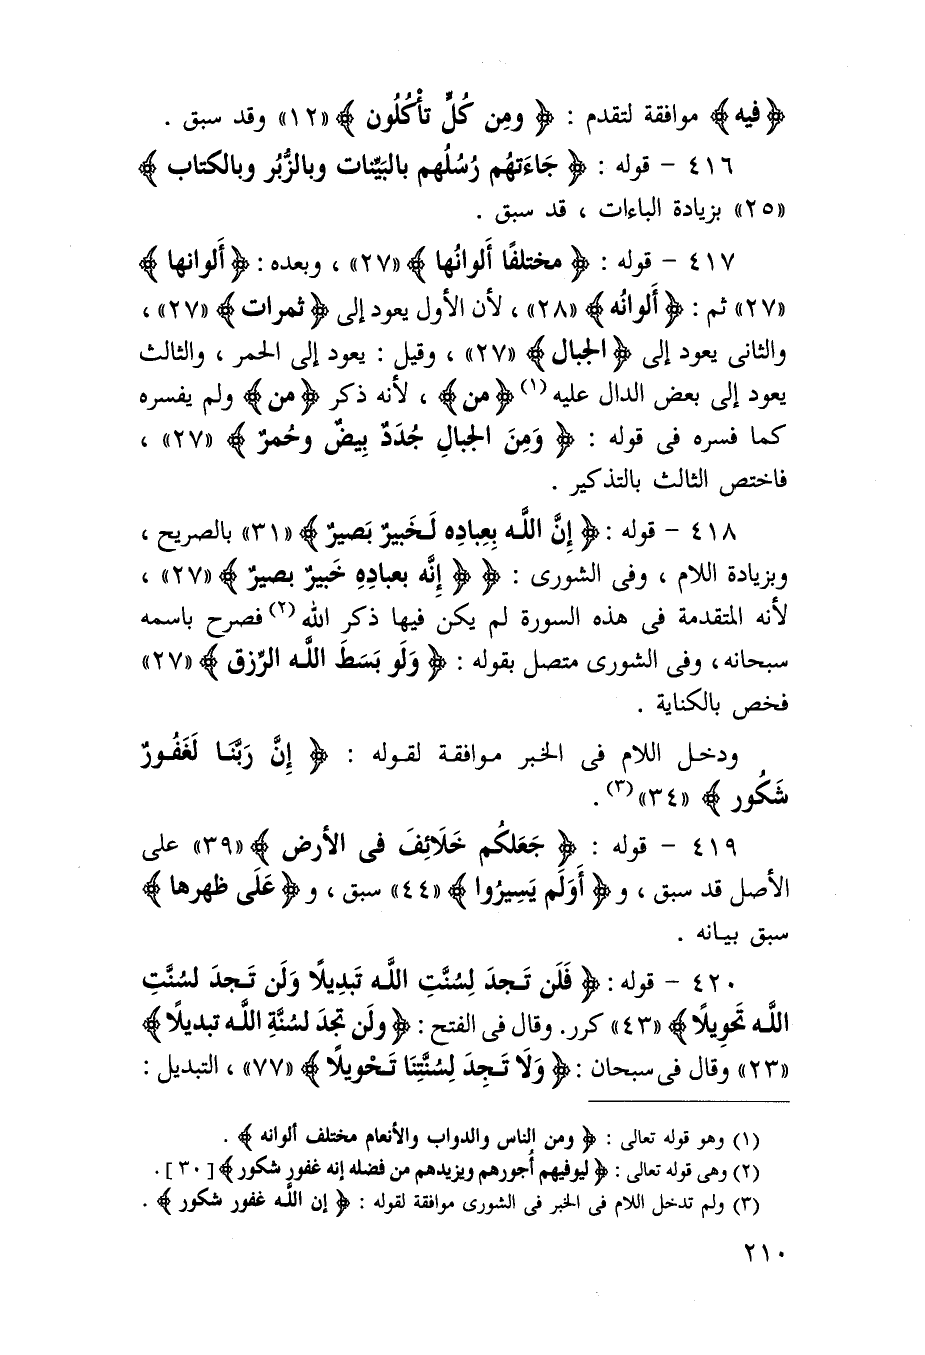 ﴿ فيه ﴾ موافقة لتقدم : ﴿ ومِن كُلٍّ تأْكُلُون ﴾ «١٢» وقد سبق .
٤١٦ - قوله : ﴿ جَاءَتهُم رُسُلُهم بالبَيِّنات وبالزُّبُر وبالكتاب ﴾
«٢٥» بزيادة الباءات ، قد سبق .
٤١٧ - قوله : ﴿ مختلفًا أَلوانُها ﴾ «٢٧» ، وبعده : ﴿ أَلوانها ﴾
«٢٧» ثم : ﴿ أَلوانُه ﴾ «٢٨» ، لأن الأول يعود إلى ﴿ ثمرات ﴾ «٢٧» ،
والثانى يعود إلى ﴿ الجبال ﴾ «٢٧» ، وقيل : يعود إلى الحمر ، والثالث
يعود إلى بعض الدال عليه (١) ﴿ من ﴾ ، لأنه ذكر ﴿ من ﴾ ولم يفسره
كما فسره فى قوله : ﴿ وَمِنَ الجبالِ جُدَدٌ بِيضٌ وحُمرٌ ﴾ «٢٧» ،
فاختص الثالث بالتذكير .
٤١٨ - قوله : ﴿ إِنَّ اللَّه بِعِباده لَخَبيرٌ بَصيرٌ ﴾ «٣١» بالصريح ،
وبزيادة اللام ، وفى الشورى : ﴿ ﴿ إِنَّه بعبادِهِ خَبيرٌ بصيرٌ ﴾ «٢٧» ،
لأنه المتقدمة فى هذه السورة لم يكن فيها ذكر الله (٢) فصرح باسمه
سبحانه ، وفى الشورى متصل بقوله : ﴿ وَلَو بَسَطَ اللَّه الرِّزق ﴾ «٢٧»
فخص بالكناية .
ودخل اللام فى الخبر موافقة لقوله : ﴿ إِنَّ رَبَّنَا لَغَفُورٌ
شَكُور ﴾ «٣٤» (٣) .
٤١٩ - قوله : ﴿ جَعَلكُم خَلَائِفَ فى الأرض ﴾ «٣٩» على
الأصل قد سبق ، و ﴿ أَوَلَم يَسِيرُوا ﴾ «٤٤» سبق ، و ﴿ عَلَى ظهرها ﴾
سبق بيانه .
٤٢٠ - قوله : ﴿ فَلَن تَجدَ لِسُنَّتِ اللَّه تَبدِيلًا وَلَن تَجدَ لسُنَّتِ
اللَّه تَحوِيلًا ﴾ «٤٣» كرر. وقال فى الفتح : ﴿ ولَن تجدَ لسُنَّةِ اللَّه تبديلًا ﴾
«٢٣» وقال فى سبحان : ﴿ وَلَا تَجِدَ لِسُنَّتِنَا تَحْويلًا ﴾ «٧٧» ، التبديل :
(١) وهو قوله تعالى : ﴿ ومن الناس والدواب والأنعام مختلف ألوانه ﴾ .
(٢) وهى قوله تعالى : ﴿ ليوفيهم أجورهم ويزيدهم من فضله إنه غفور شكور ﴾ [ ٣٠ ] .
(٣) ولم تدخل اللام فى الخبر فى الشورى موافقة لقوله : ﴿ إن اللَّه غفور شكور ﴾ .
٢١٠